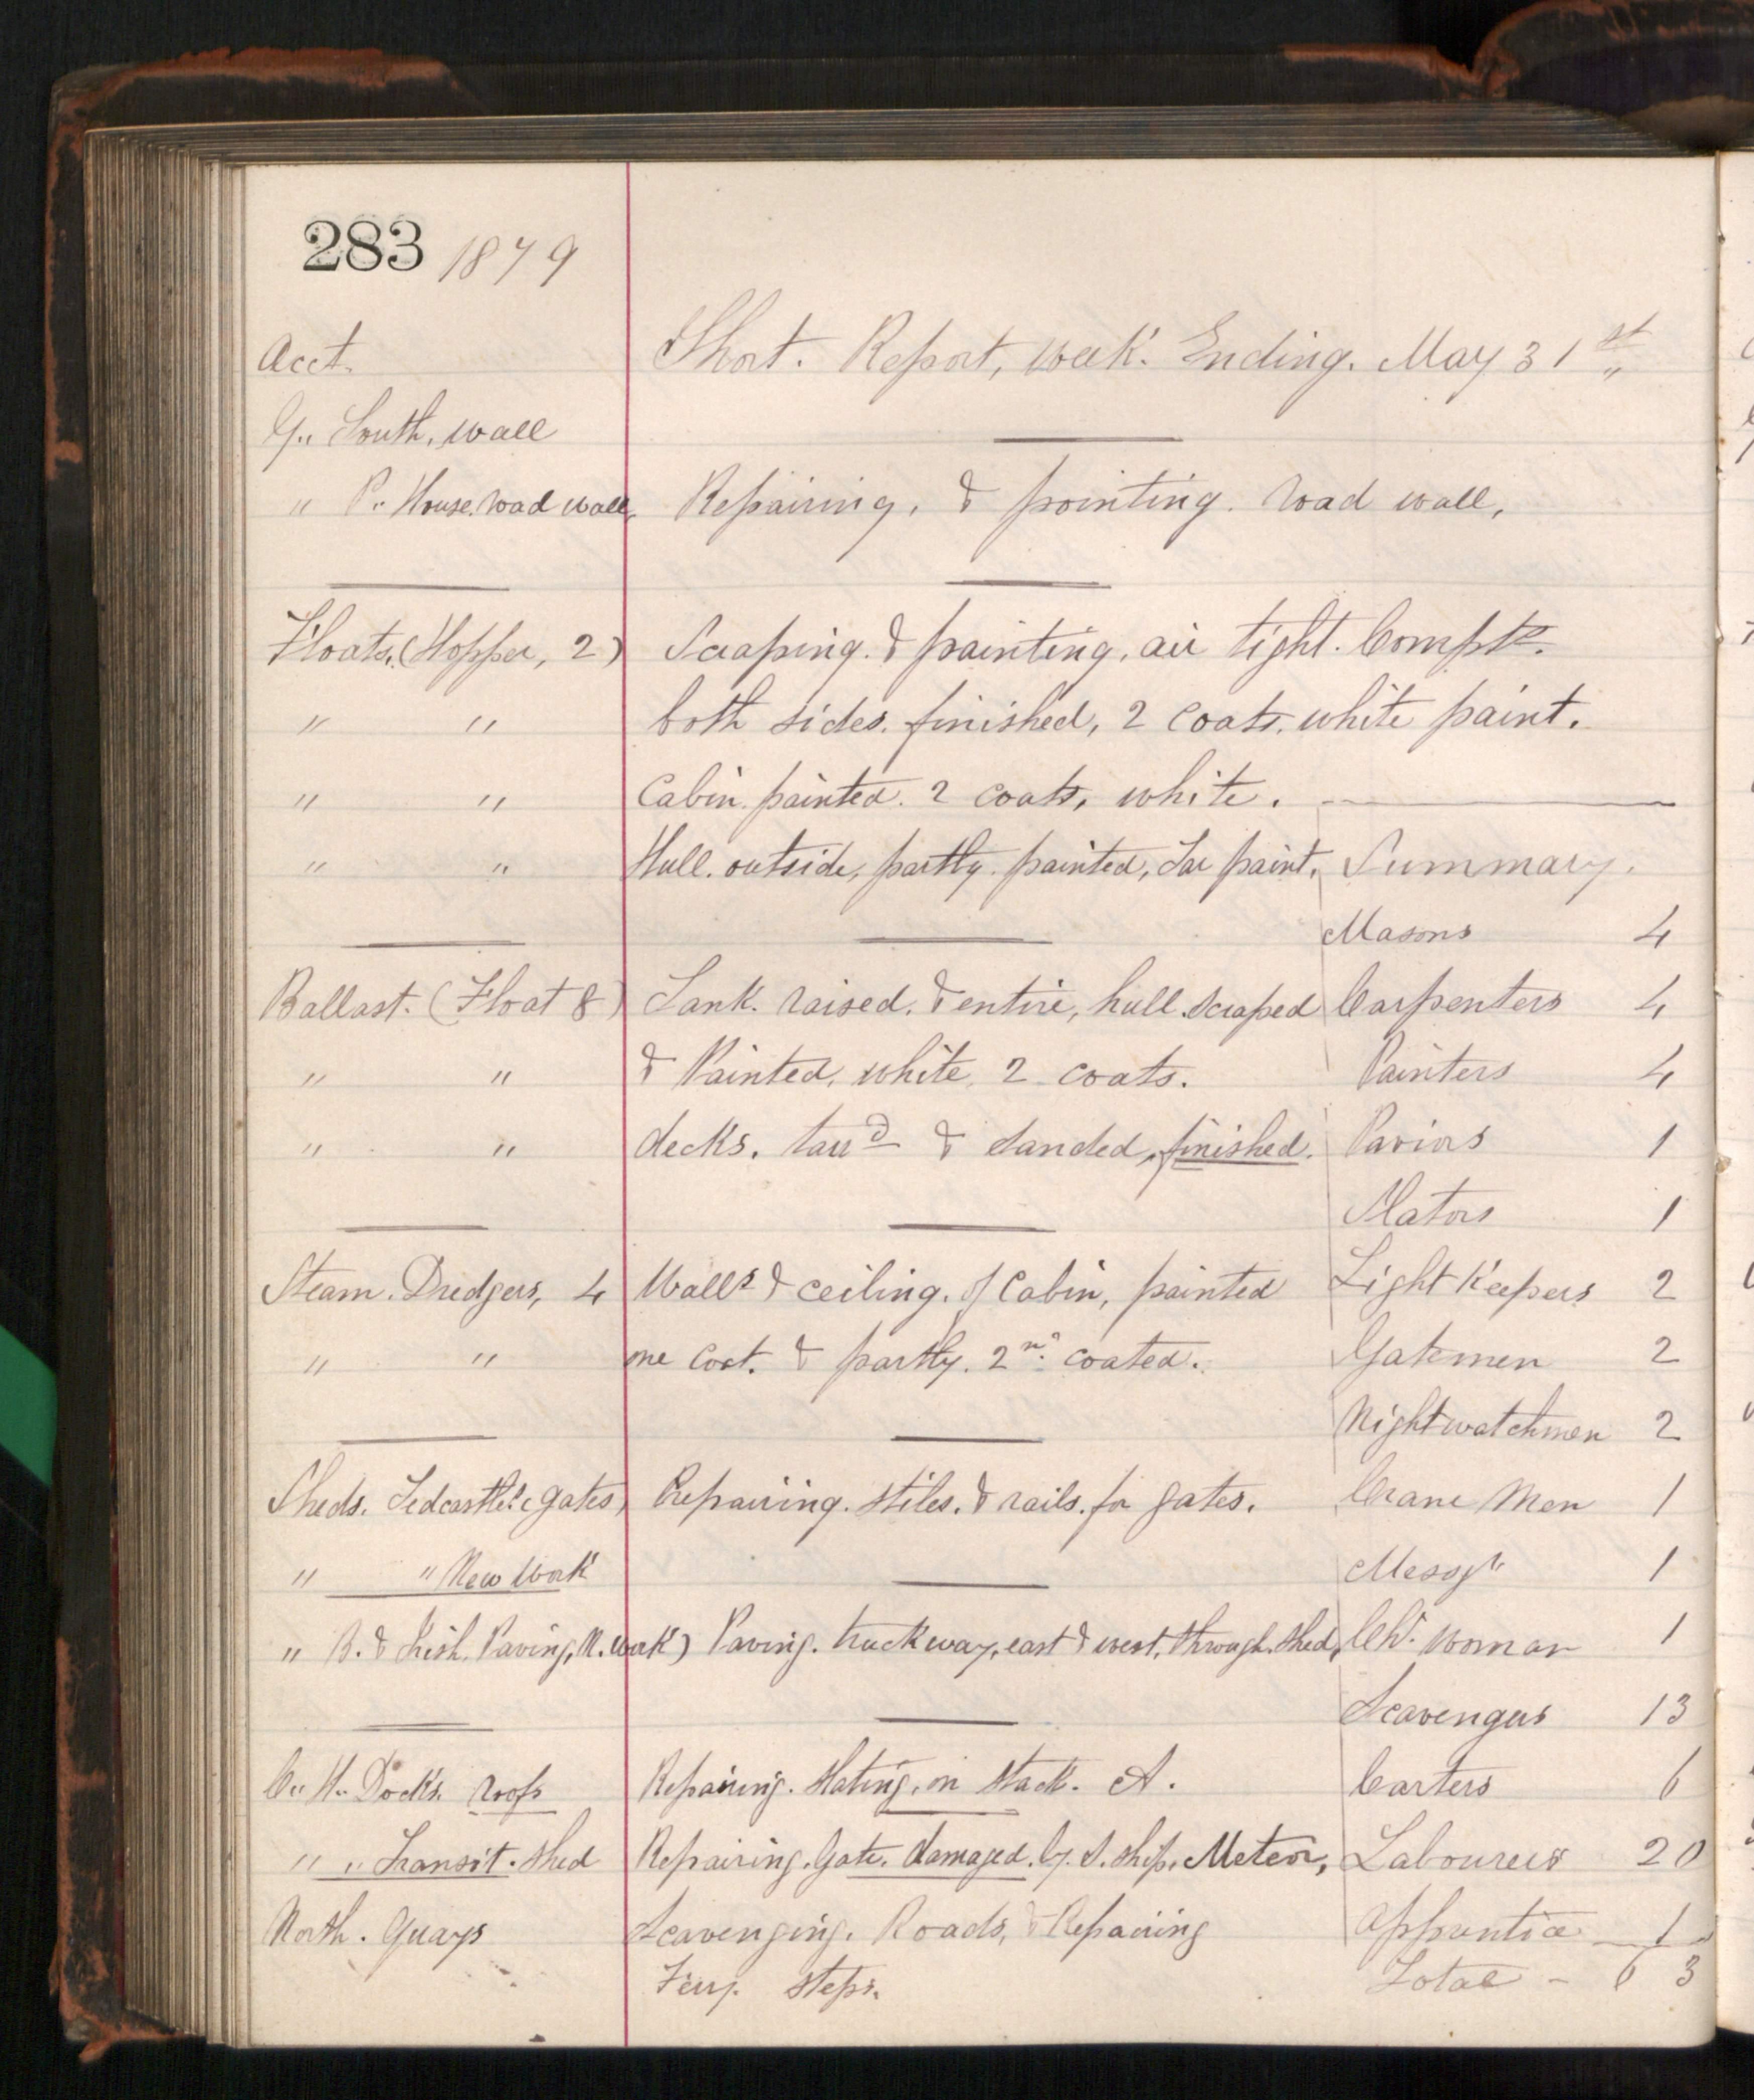 283 1879
Acct. Short. Report, week. Ending. May 31st
G.. South, wall
" P.. House. road wall, Repairing, & pointing. road wall,
Floats, (Hopper, 2) Scraping. & painting, air tight. Compts.
" " both sides. finished, 2 coats. white paint.
" " Cabin. painted. 2 coats, white.
" " Hull. outside, partly. painted, Tar paint, Summary.
Masons 4
Ballast. (Float 8) Tank. raised. & entire, hull. scraped Carpenters 4
" " & Painted, white, 2 coats. Painters 4
" " decks. tarrd & sanded, finished. Paviors 1
Slators 1
Steam. Dredgers, 4 Walls & ceiling. of Cabin, painted Light Keepers 2
" " one coat. & partly. 2nd. coated. Gatemen 2
Nightwatchmen 2
Sheds. Tedcastle's gates, Repairing. stiles. & rails. for gates. Crane Men 1
" " New Work Messgr 1
" B. & Irish. Paving, N. work) Paving. truckway, east & west, through. shed, Chr. woman 1
Scavengers 13
C.. H.. Docks. roofs Repairing. slating, on stack. A. Carters 6
" " Transit. shed Repairing. Gate. damaged. by. S. ship, Meteor, Labourers 20
North. Quays Scavenging. Roads, & Repairing Apprentice 1
Ferry. steps. Total - 63